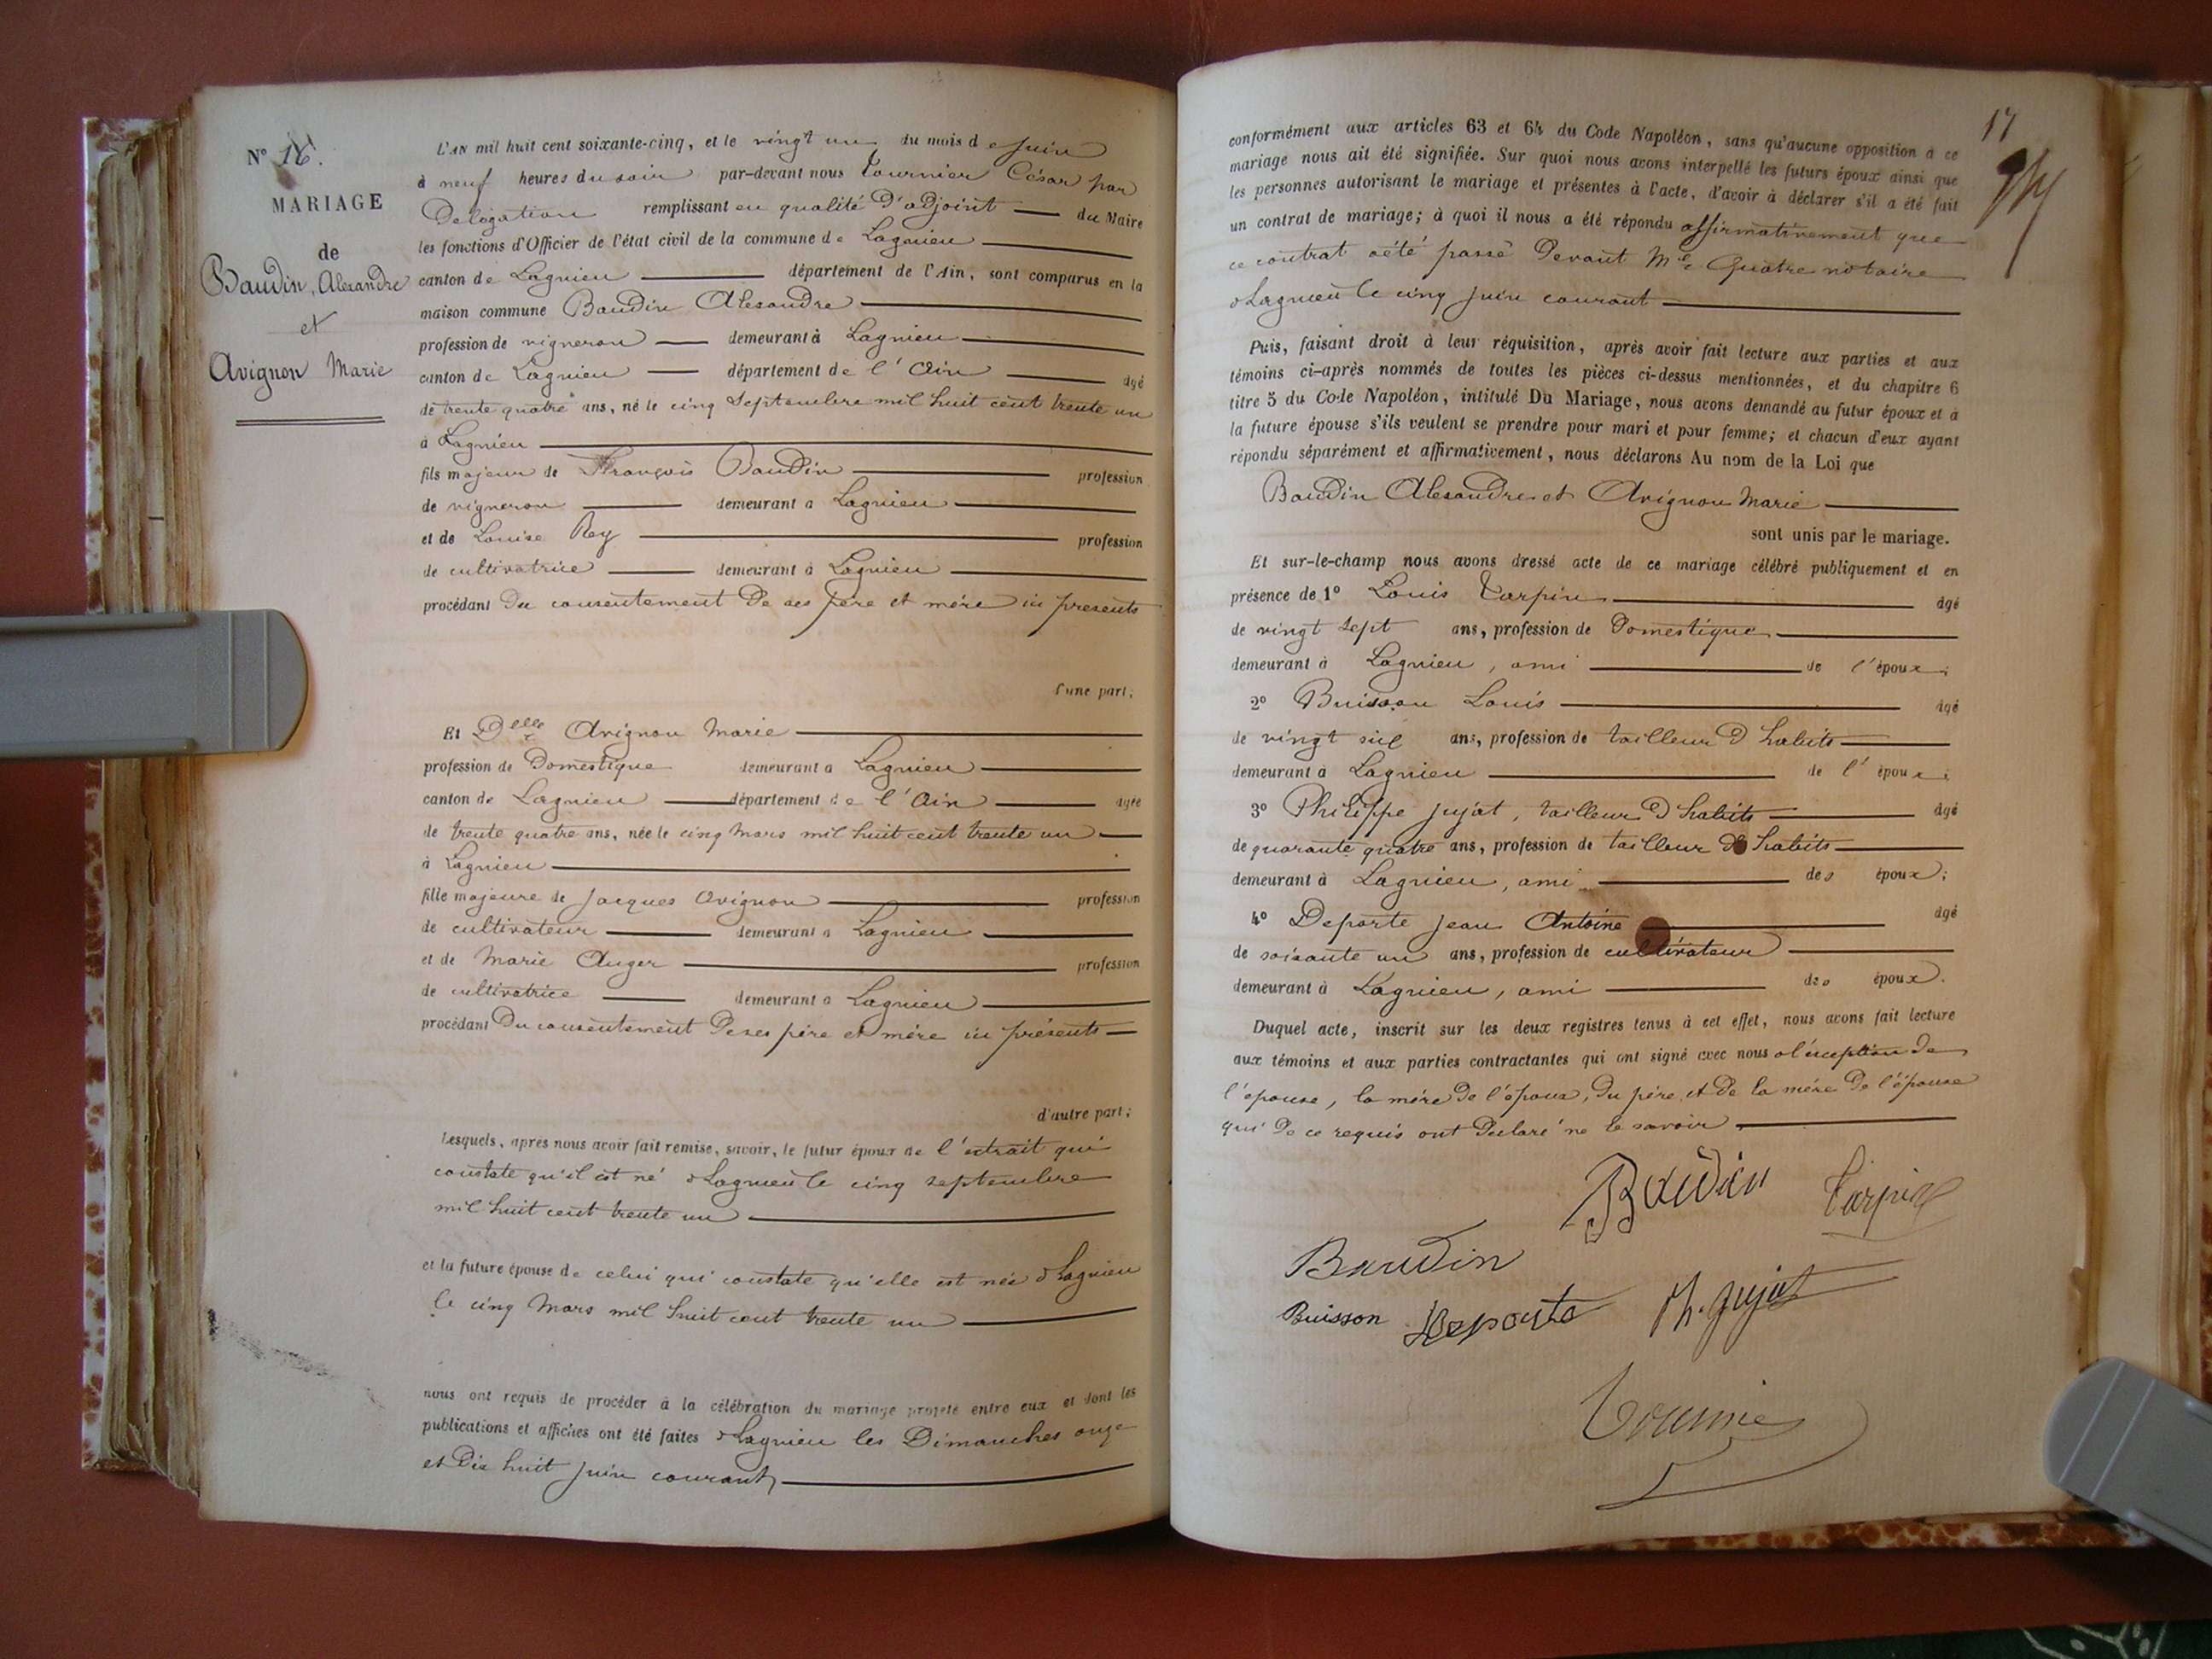 N° 16.
MARIAGE
de
Baudin, Alexandre
et
Avignon Marie
L'AN mil huit cent soixante-cinq, et le vingt un du mois de Juin
à neuf heures du soir par-devant nous Tournier César par
Délégation remplissant en qualité d'adjoint du Maire
les fonctions d'Officier de l'état civil de la commune de Lagnieu
canton de Lagnieu département de l'Ain, sont comparus en la
maison commune Baudin Alexandre
profession de vigneron demeurant à Lagnieu
canton de Lagnieu département de l'Ain âgé
de trente quatre ans, né le cinq Septembre mil huit cent trente un
à Lagnieu
fils majeur de François Baudin profession
de vigneron demeurant à Lagnieu
et de Louise Rey profession
de cultivatrice demeurant à Lagnieu
procédant du consentement de ses père et mère ici présents
d'une part;
Et Delle Avignon Marie
profession de Domestique demeurant à Lagnieu
canton de Lagnieu département de l'Ain âgée
de trente quatre ans, née le cinq Mars mil huit cent trente un
à Lagnieu
fille majeure de Jacques Avignon profession
de cultivateur demeurant à Lagnieu
et de Marie Auger profession
de cultivatrice demeurant à Lagnieu
procédant du consentement de ses père et mère ici présents
d'autre part;
Lesquels, après nous avoir fait remise, savoir, le futur époux de l'extrait qui
constate qu'il est né à Lagnieu le cinq septembre
mil huit cent trente un
et la future épouse de celui qui constate qu'elle est née à Lagnieu
le cinq Mars mil huit cent trente un
nous ont requis de procéder à la célébration du mariage projeté entre eux et dont les
publications et affiches ont été faites à Lagnieu les Dimanches onze
et dix huit juin courant
17
conformément aux articles 63 et 64 du Code Napoléon, sans qu'aucune opposition à ce
mariage nous ait été signifiée. Sur quoi nous avons interpellé les futurs époux ainsi que
les personnes autorisant le mariage et présentes à l'acte, d'avoir à déclarer s'il a été fait
un contrat de mariage; à quoi il nous a été répondu affirmativement que
ce contrat a été passé devant Me Quatre notaire
à Lagnieu le cinq juin courant
Puis, faisant droit à leur réquisition, après avoir fait lecture aux parties et aux
témoins ci-après nommés de toutes les pièces ci-dessus mentionnées, et du chapitre 6
titre 5 du Code Napoléon, intitulé Du Mariage, nous avons demandé au futur époux et à
la future épouse s'ils veulent se prendre pour mari et pour femme; et chacun d'eux ayant
répondu séparément et affirmativement, nous déclarons Au nom de la Loi que
Baudin Alexandre et Avignon Marie
sont unis par le mariage.
Et sur-le-champ nous avons dressé acte de ce mariage célébré publiquement et en
présence de 1° Louis Tarpin âgé
de vingt sept ans, profession de Domestique
demeurant à Lagnieu, ami de l'époux;
2° Buisson Louis âgé
de vingt six ans, profession de tailleur d'habits
demeurant à Lagnieu de l'époux;
3° Philippe Jujat, tailleur d'habits âgé
de quarante quatre ans, profession de tailleur d'habits
demeurant à Lagnieu, ami des époux;
4° Deporte Jean Antoine âgé
de soixante un ans, profession de cultivateur
demeurant à Lagnieu, ami des époux.
Duquel acte, inscrit sur les deux registres tenus à cet effet, nous avons fait lecture
aux témoins et aux parties contractantes qui ont signé avec nous à l'exception de
l'épouse, la mère de l'époux, du père et de la mère de l'épouse
qui de ce requis ont déclaré ne le savoir.
Baudin Tarpin
Baudin
Buisson Deporte Ph. Jujat
Tournier